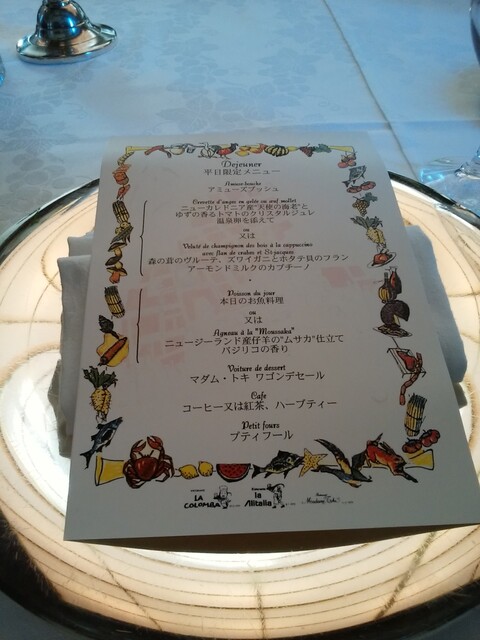 Dejeuner
平日限定メニュー
Amuse-bouche
アミューズブッシュ
Crevette d'anges en gelée ou œuf mollet
ニューカレドニア産"天使の海老"と
ゆずの香るトマトのクリスタルジュレ
温泉卵を添えて
ou
又は
Velouté de champignon des bois à la cappuccino
avec flan de crabes et St-jacques
森の茸のヴルーテ、ズワイガニとホタテ貝のフラン
アーモンドミルクのカプチーノ
Poisson du jour
本日のお魚料理
ou
又は
Agneau à la "Moussaka"
ニュージーランド産仔羊の"ムサカ"仕立て
バジリコの香り
Voiture de dessert
マダム・トキ ワゴンデセール
Cafe
コーヒー又は紅茶、ハーブティー
Petit fours
プティフール
LA COLOMBA
la Alitalia
Madame Toki